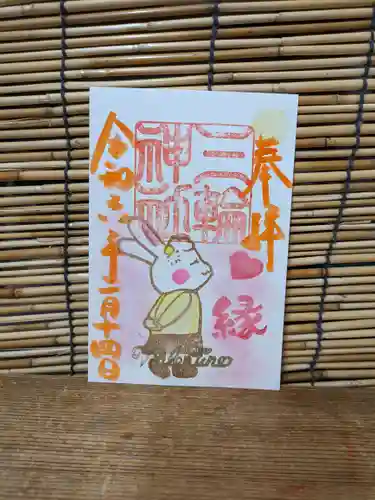 奉拝
三輪
神社
縁
令和六年二月十四日